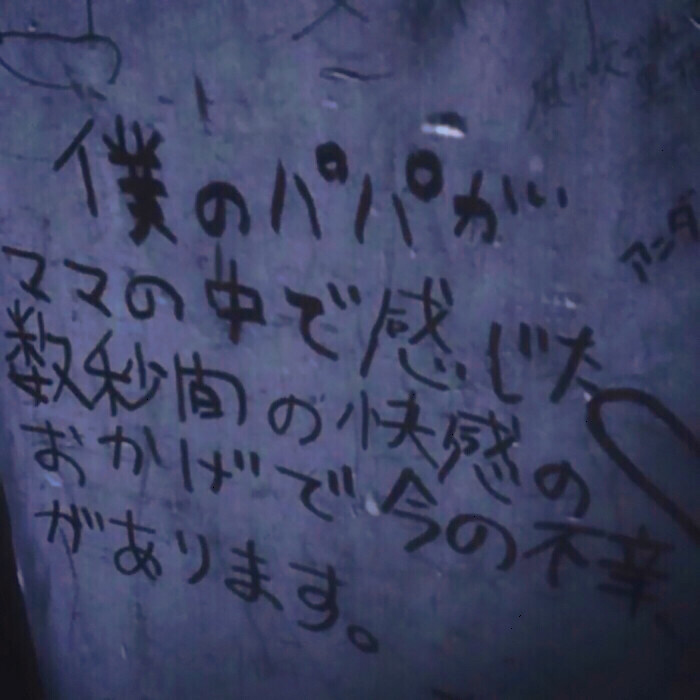 僕のパパが
ママの中で感じた
数秒間の快感の
おかげで今の不幸
があります。
アンダ